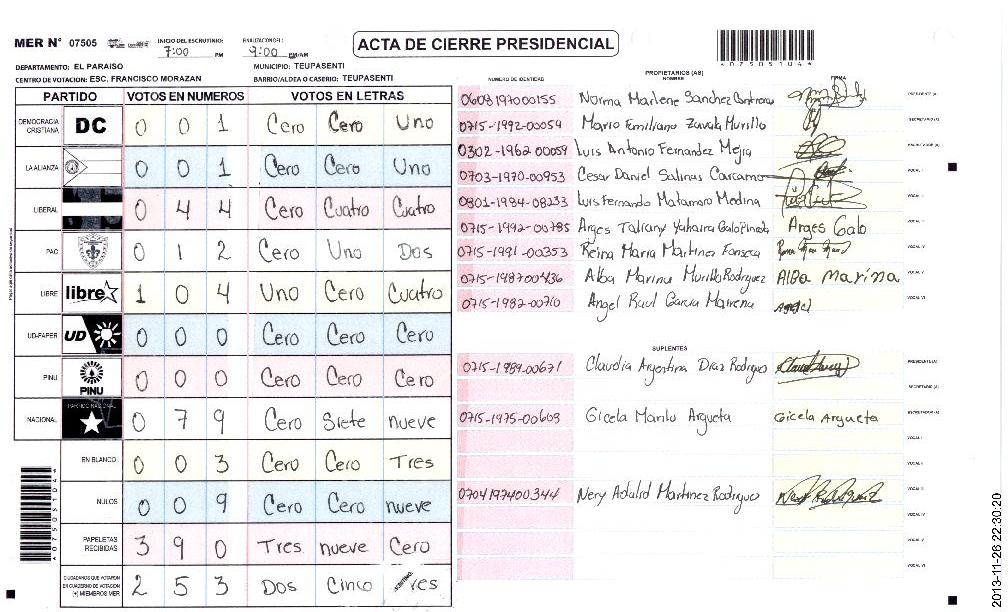 MER N° 07505
INICIO DEL ESCRUTINIO: 7:00 PM
FINALIZACION DEL: 9:00 PM/AM
ACTA DE CIERRE PRESIDENCIAL
4075051044
DEPARTAMENTO: EL PARAISO
MUNICIPIO: TEUPASENTI
CENTRO DE VOTACION: ESC. FRANCISCO MORAZAN
BARRIO/ALDEA O CASERIO: TEUPASENTI
PARTIDO VOTOS EN NUMEROS VOTOS EN LETRAS
DEMOCRACIA CRISTIANA DC 0 0 1 Cero Cero Uno
LA ALIANZA 0 0 1 Cero Cero Uno
LIBERAL 0 4 4 Cero Cuatro Cuatro
PAC 0 1 2 Cero Uno Dos
LIBRE libre 1 0 4 Uno Cero Cuatro
UD-FAPER UD 0 0 0 Cero Cero Cero
PINU PINU 0 0 0 Cero Cero Cero
NACIONAL PARTIDO NACIONAL 0 7 9 Cero Siete nueve
EN BLANCO 0 0 3 Cero Cero Tres
NULOS 0 0 9 Cero Cero nueve
PAPELETAS RECIBIDAS 3 9 0 Tres nueve Cero
CIUDADANOS QUE VOTARON EN CUADERNO DE VOTACION (+) MIEMBROS MER 2 5 3 Dos Cinco Tres
4075051044
NUMERO DE IDENTIDAD
PROPIETARIOS (AS)
NOMBRE
FIRMA
0608197000155 Norma Marlene Sanchez Contreras PRESIDENTE (A)
0715-1992-00059 Mario Emiliano Zavala Murillo SECRETARIO (A)
0302-1962 00059 Luis Antonio Fernandez Mejia ESCRUTADOR (A)
0703-1970-00953 Cesar Daniel Salinas Carcamo VOCAL I
0801-1984-08233 Luis Fernando Matamoro Medina VOCAL II
0715-1992-00785 Arges Arges Galo VOCAL III
0715-1991-00353 Reina Maria Martinez Fonseca VOCAL IV
0715-198700436 Alba Marina Murillo Rodriguez Alba Marina VOCAL V
0715-1982-00710 Angel Raul Garcia Mairena Angel VOCAL VI
SUPLENTES
0715-1989-00671 Claudia Argentina Diaz Rodrigue PRESIDENTE (A)
SECRETARIO (A)
0715-1975-00603 Gicela Marilu Argueta Gicela Argueta ESCRUTADOR (A)
VOCAL I
VOCAL II
0704197400344 Nery Adalid Martinez Rodriguez VOCAL III
VOCAL IV
VOCAL V
VOCAL VI
2013-11-26 22:30:20